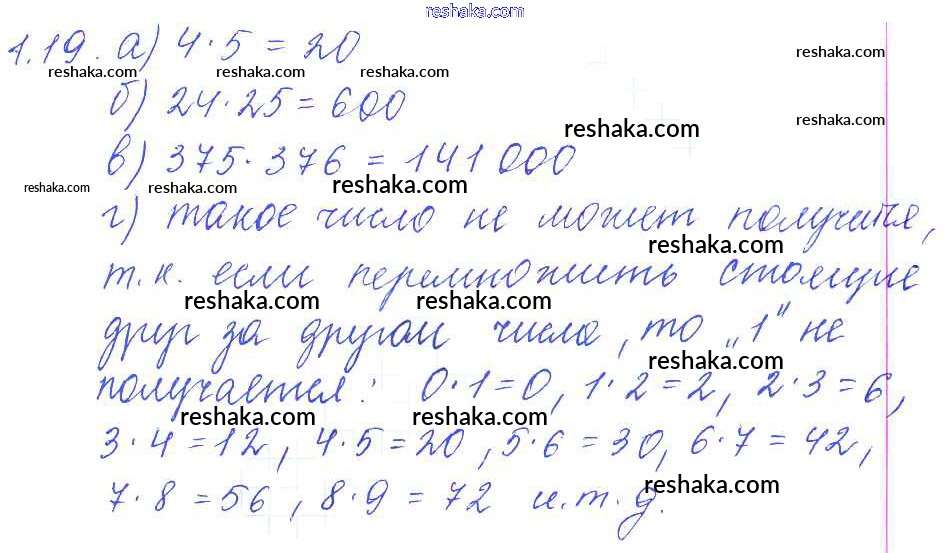 reshaka.com
1.19. а) 4·5 = 20
reshaka.com
reshaka.com reshaka.com reshaka.com
б) 24·25 = 600
reshaka.com
reshaka.com
в) 375·376 = 141 000
reshaka.com reshaka.com reshaka.com
г) такое число не может получится,
reshaka.com
т.к. если перемножить стоящие
reshaka.com reshaka.com
друг за другом числа, то „1" не
reshaka.com
получается: 0·1=0, 1·2=2, 2·3=6,
reshaka.com reshaka.com
3·4=12, 4·5=20, 5·6=30, 6·7=42,
reshaka.com
7·8=56, 8·9=72 и.т.д.